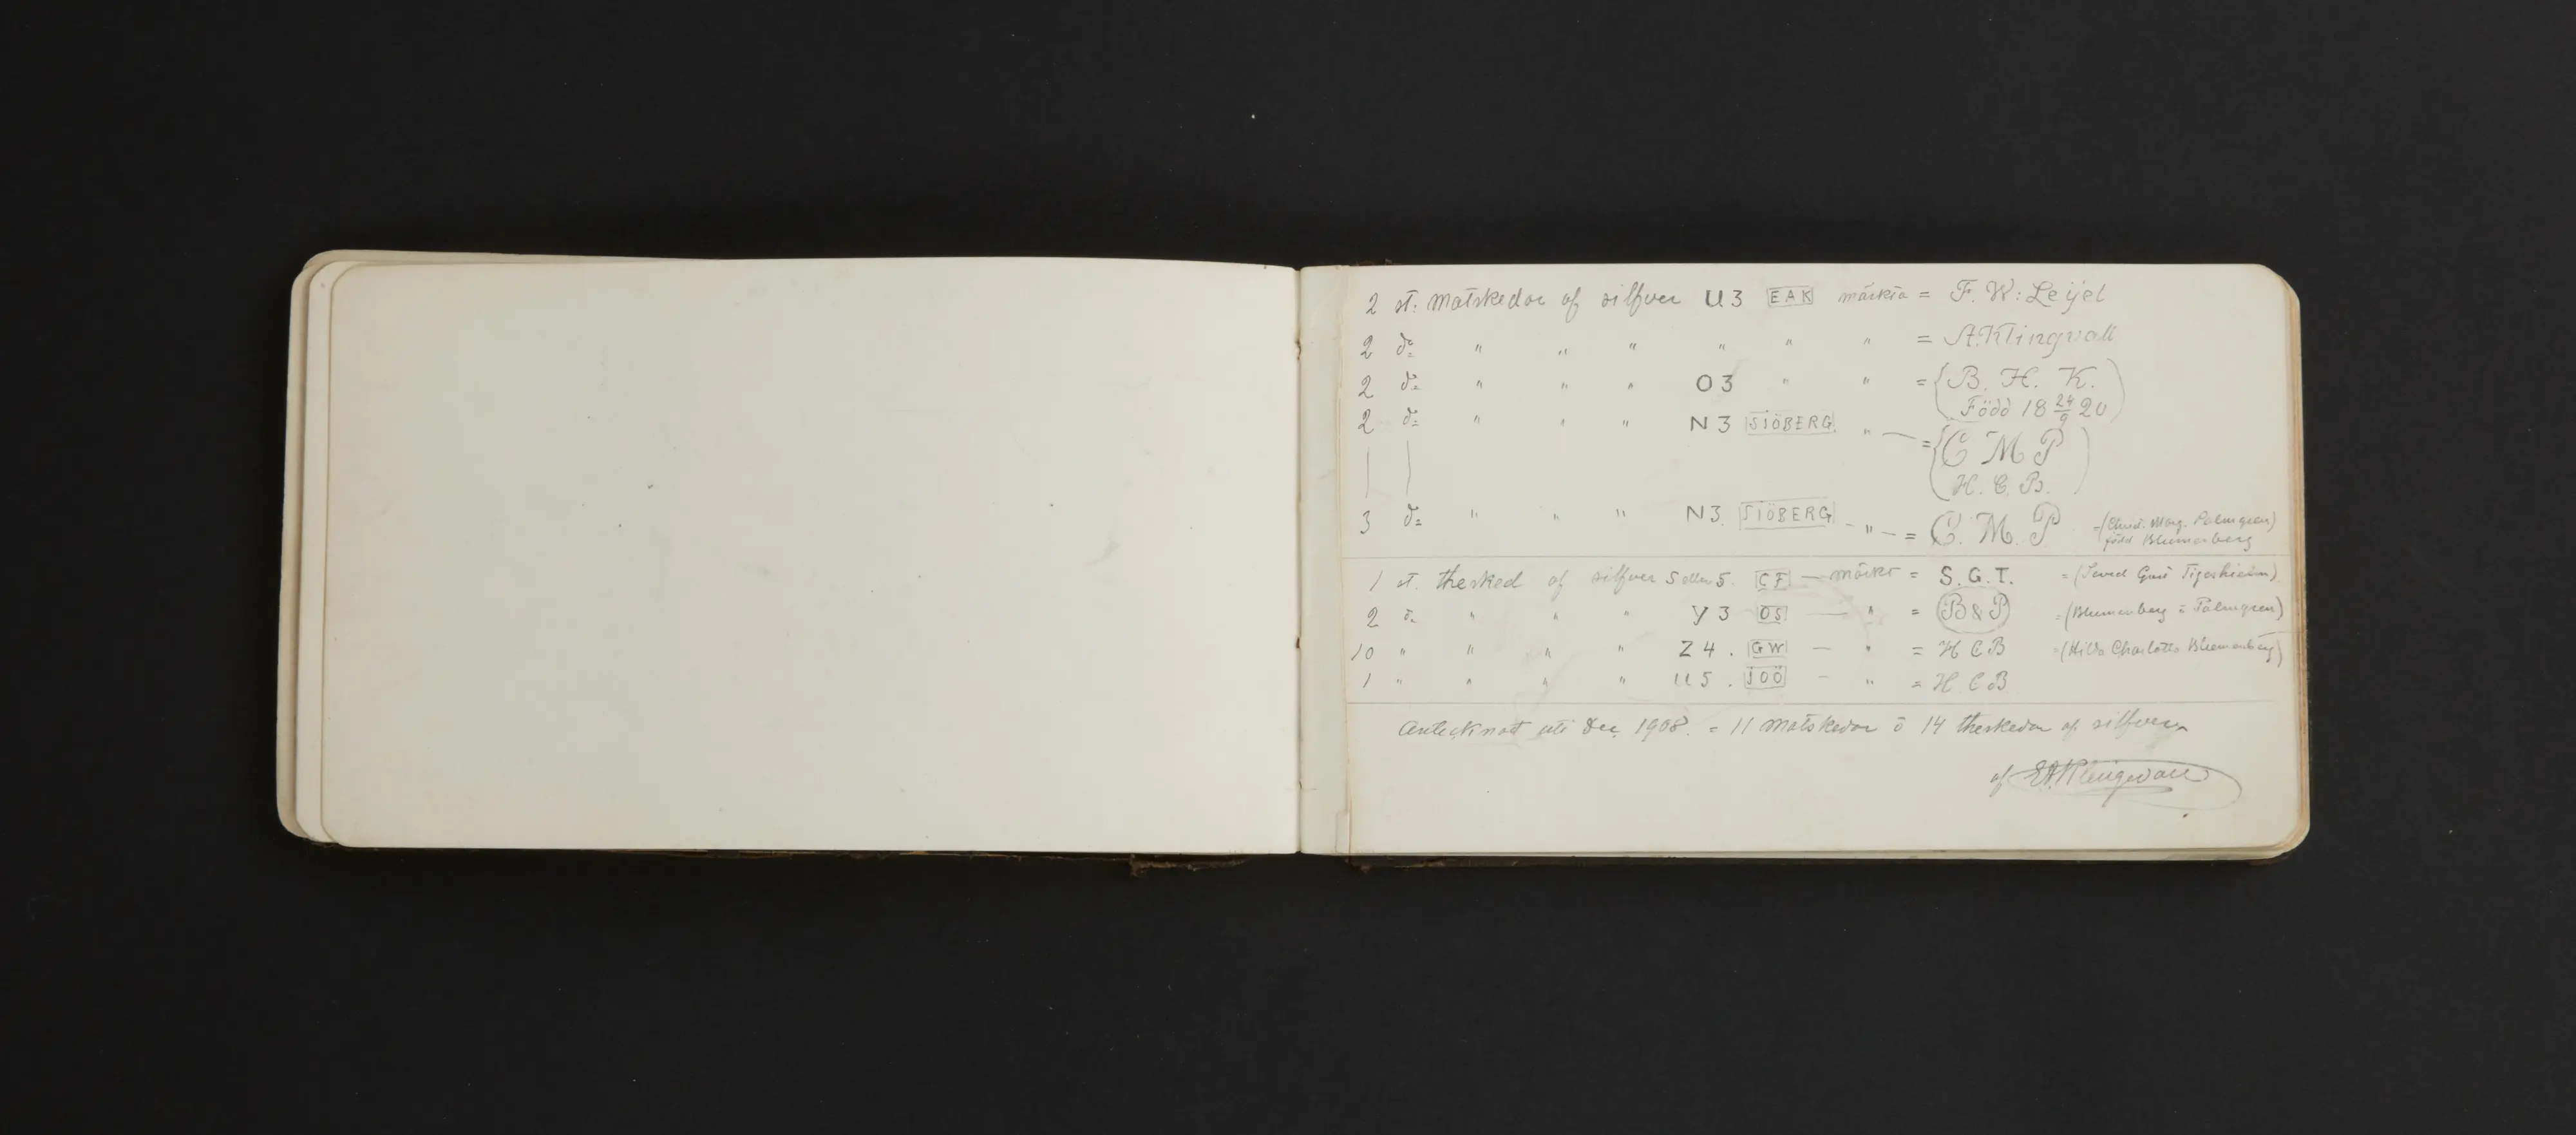 2 st. Matskedar af silfver U3 EAK märkta = F. W: Leijel
2 do " " " " " " = A. Klingvall
2 do " " " O3 " " = B. H. K.
Född 18 24/9 20
2 do " " " N3 SIÖBERG " = C M P
H. C. B.
3 do " " " N3. SIÖBERG " = C. M. P =(Christ. Marg. Palmgren)
född Blumenberg
1 st. thesked af silfver S eller 5. CF — märkt = S.G.T. =( Gust Tigerhielm)
2 do " " " Y3 OS — " = B&P =(Blumenberg & Palmgren)
10 " " " " Z4. GW — " = H C B =(Hilda Charlotta Blumenberg)
1 " " " " U5. — " = H C B
Antecknat uti Dec. 1908. = 11 Matskedar o 14 theskedar af silfver
af EA Klingwall